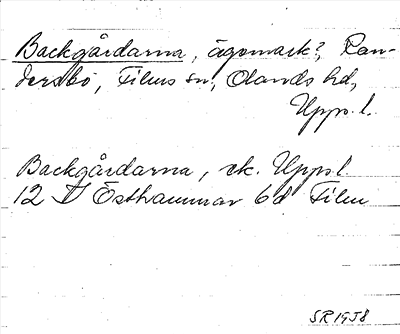 Backgårdarna, ägomark?, Ran-
dersbo, Films sn, Olands hd,
Upps. l.
Backgårdarna, ek. Upps l.
12 I Östhammar 6d Film
SR 1958